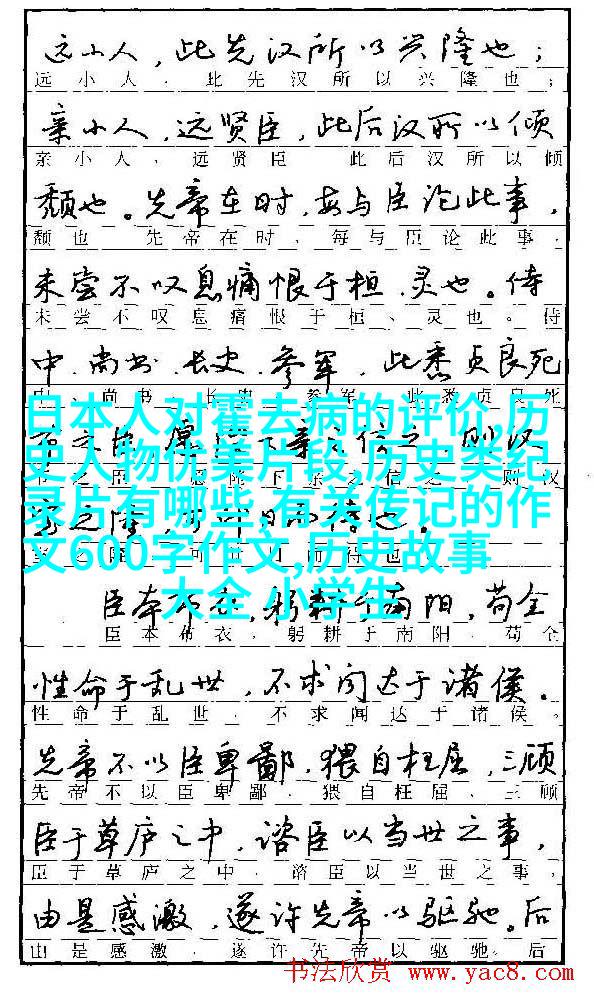 远小人，此先汉所以兴隆也；
远小人，此先汉所以兴隆也；
亲小人，远贤臣，此后汉所以倾
亲小人，远贤臣 此后汉所以倾
颓也。先帝在时，每与臣论此事，
颓也 先帝在时，每与臣论此事，
未尝不叹息痛恨于桓、灵也。侍
未尝不叹息痛恨于桓、灵也。侍
中、尚书、长史、参军，此悉贞良死
中、尚书、长史、参军，此悉贞良死
日本人对霍去病的评价,历
史人物优美片段,历史类纪
录片有哪些,有关传记的作
文600字作文,历史故事
大全 小学生
亲之信之 则汉
之臣 亲之信之 则汉
待也。
臣本布衣，躬耕于南阳，苟全
臣本布衣，躬耕于南阳，苟全
性命于乱世，不求闻达于诸侯。
性命于乱世，不求闻达于诸侯。
先帝不以臣卑鄙，猥自枉屈，三顾
先帝不以臣卑鄙，猥自枉屈、三顾
臣于草庐之中，谘臣以当世之事，
臣于草庐之中，谘臣以当世之事，
由是感激，遂许先帝以驱驰。后
由是感激，遂许先帝以驱驰。后
书法欣赏 www.yac8.com